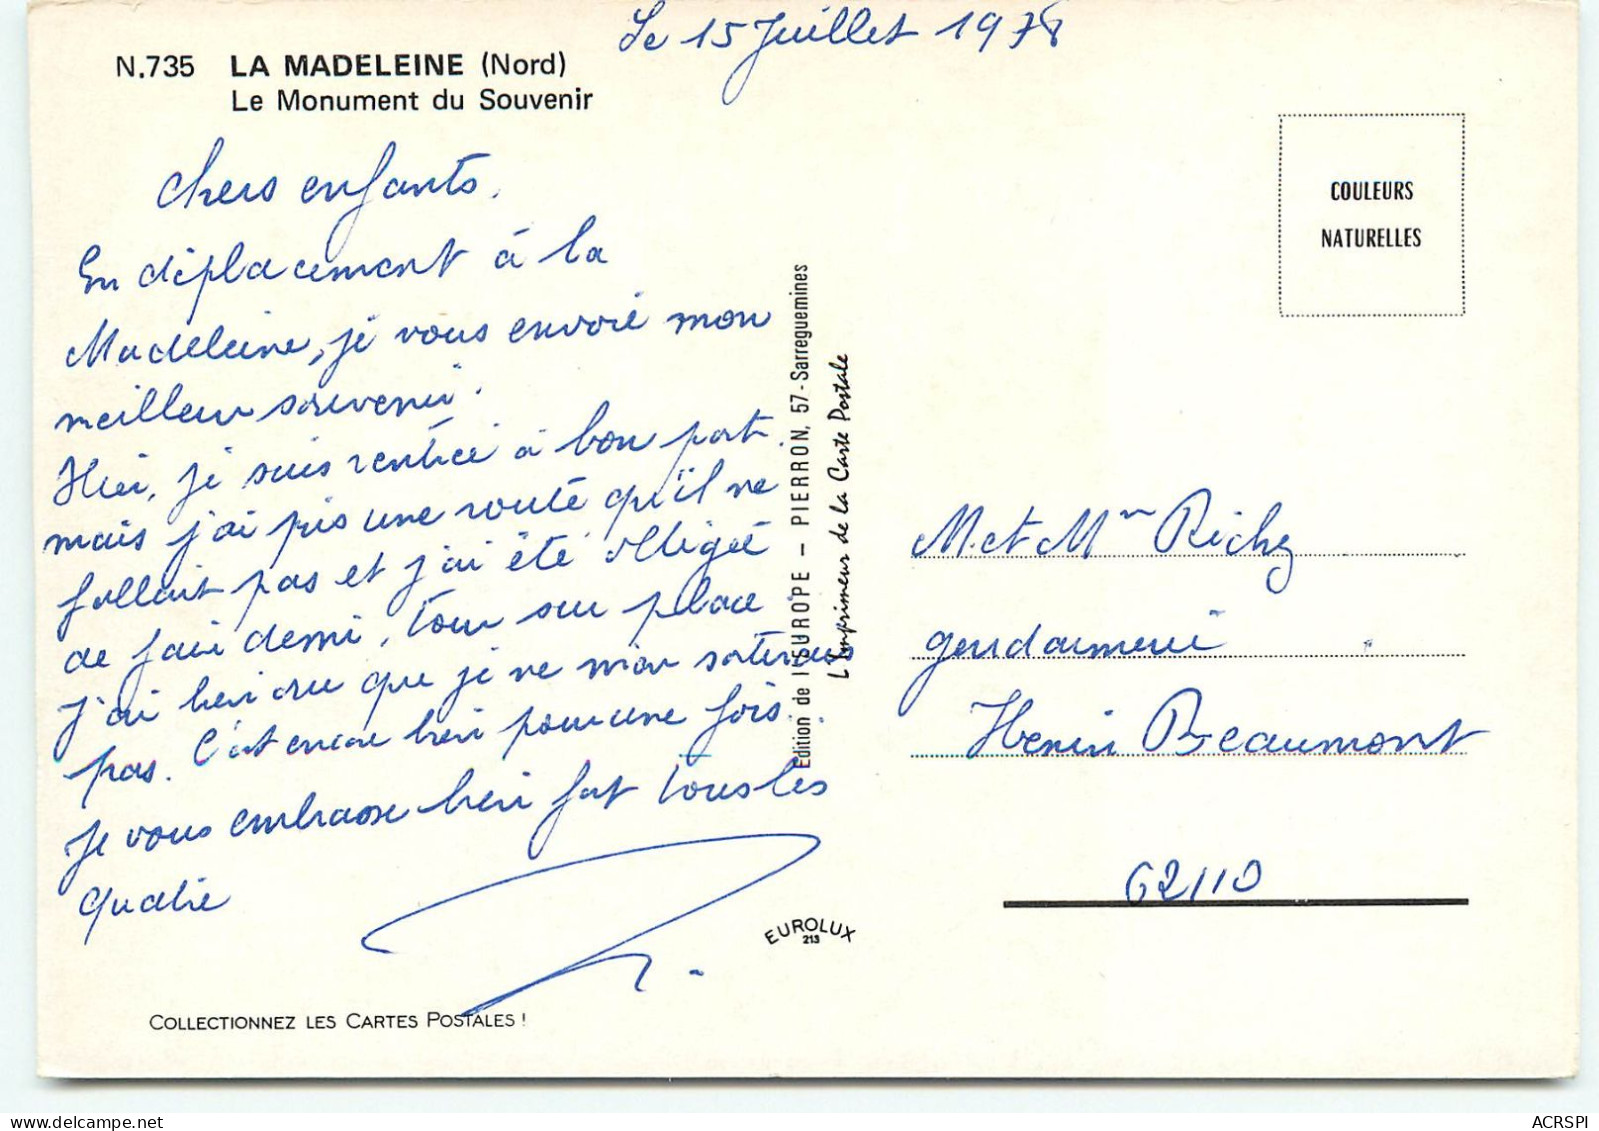 Le 15 Juillet 1978
N.735 LA MADELEINE (Nord)
Le Monument du Souvenir
Chers enfants.
En déplacement à la
Madeleine, je vous envoie mon
meilleur souvenir.
Hier, je suis rentrée à bon port.
mais j'ai pris une route qu'il ne
fallait pas et j'ai été obligée
de faire demi, tour sur place
j'ai bien cru que je ne m'en sortirais
pas. C'est encore bien pour une fois.
Je vous embrasse bien fort tous les
quatre
COLLECTIONNEZ LES CARTES POSTALES !
EUROLUX
213
Édition de l'EUROPE – PIERRON, 57 - Sarreguemines
L'Imprimeur de la Carte Postale
COULEURS
NATURELLES
M. et Mme Richy
gendarmerie
Henin Beaumont
62110
ACRSPI